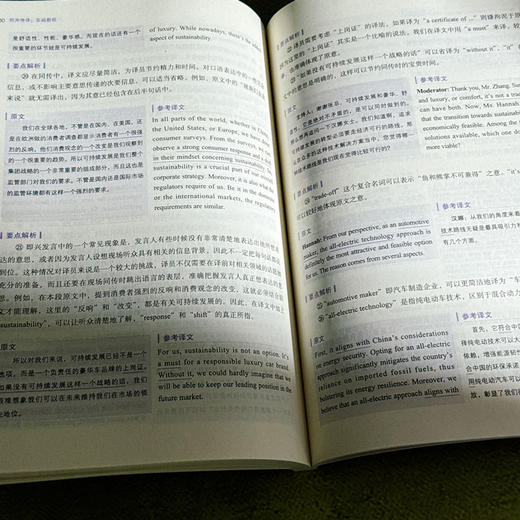 同声传译：实战教程
是舒适性、性能、豪华感，而现在的话还有一个
很重要的环节就是可持续发展。
of luxury. While nowadays, there's the
aspect of sustainability.
要点解析
在同传中，译文应尽量简洁，为译员节约精力和时间，对口语表达中的一些
信息，或不影响主要意思传递的次要信息，可以适当省略。例如，原文中的
来说”就无需译出，因为其意已经包含在后半句话中。
原文
我们在全球各地，不管是在国内、在美国，还
是在欧洲做的消费者调查都显示消费者有一个很强
烈的反响，他们消费观念的一个改变是我们观察到
的一个很重要的趋势。所以可持续发展是我们整个
集团战略的一个非常重要的组成部分，而且这也是
监管部门对我们的要求。不管是国内还是国际市场
的监管环境都有这样一个强烈的要求。
参考译文
In all parts of the world, whether in China,
the United States, or Europe, we have done
consumer surveys. From the surveys, we can
observe a strong consumer response and a shift
in their mindset concerning sustainability. So
sustainability is a crucial part of our group's
corporate strategy. Moreover, it is also what the
regulators require of us. Be it in the domestic
or the international markets, the regulatory
requirements are similar.
要点解析
即兴发言中的一个常见现象是，发言人有些时候没有非常清楚地表达出他所想表
达的意思，或者因为发言人设想现场听众具有相关的背景信息，因此不一定把每句话都说
到位。这种情况对译员来说是一个较大的挑战，译员不仅需要在译前对相关领域的话题做
充分的准备，而且还要在现场同传时跳出语言的表层，准确把握发言人真正想表达的
思。例如，在本段原文中，提到消费者强烈的反响和消费观念的改变，这就必须结合
文才能理解。这里的“反响”和“改变”，都是有关可持续发展的。因此，在译文中
sustainability”，可以让听众清楚地了解，“response”和“shift”的真正所指。
原文
所以对我们来说，可持续发展已经不是一个
的选项，而是一个负责任的豪华车品牌的上岗证。
如果没有可持续发展这样一个战略的话，我们
很难想象我们可以在未来维持我们在市场的领
先地位。
参考译文
For us, sustainability is not an option. It's
a must for a responsible luxury car brand.
Without it, we could hardly imagine that we
will be able to keep our leading position in the
future market.
译员需要考虑“上岗证”的译法，如果译为“a certificate of ...”则
这里的“上岗证”其实是一个比喻的说法，我们在译文中用“a must”来译，
也准确体现了原意。
“如果没有可持续发展这样一个战略的话”可以省译为“without it”，“it”
文中意思是明确的，这样可以节约同传时的宝贵时间。
原文
参考译文
Moderator: Thank you, Mr. Zhang. Sus
and luxury, or comfort, it's not a tra
can have both. Now, Ms. Hannah,
that the transition towards sustain
economically feasible. Among the
solutions available, which one do
more viable?
要点解析
“trade-off”这个复合名词可以表示“鱼和熊掌不可兼得”之意，
可以较好地体现原文之意。
原文
Hannah: From our perspective, as an automotive
maker, the all-electric technology approach is
definitely the most attractive and feasible option
for us. The reason comes from several aspects.
参考译文
汉娜：从我们的角度来看
技术路线无疑是最具吸引力和
有几个方面。
要点解析
“automotive maker”即汽车制造企业，可以更简洁地译为“车
“all-electric technology”是指纯电动车技术，区别于混合动力
原文
First, it aligns with China's considerations
on energy security. Opting for an all-electric
approach significantly mitigates the country's
reliance on imported fossil fuels, thus
bolstering its energy resilience. Moreover, we
believe that an all-electric approach aligns with
参考译文
首先，它符合中国
用纯电动技术可以大